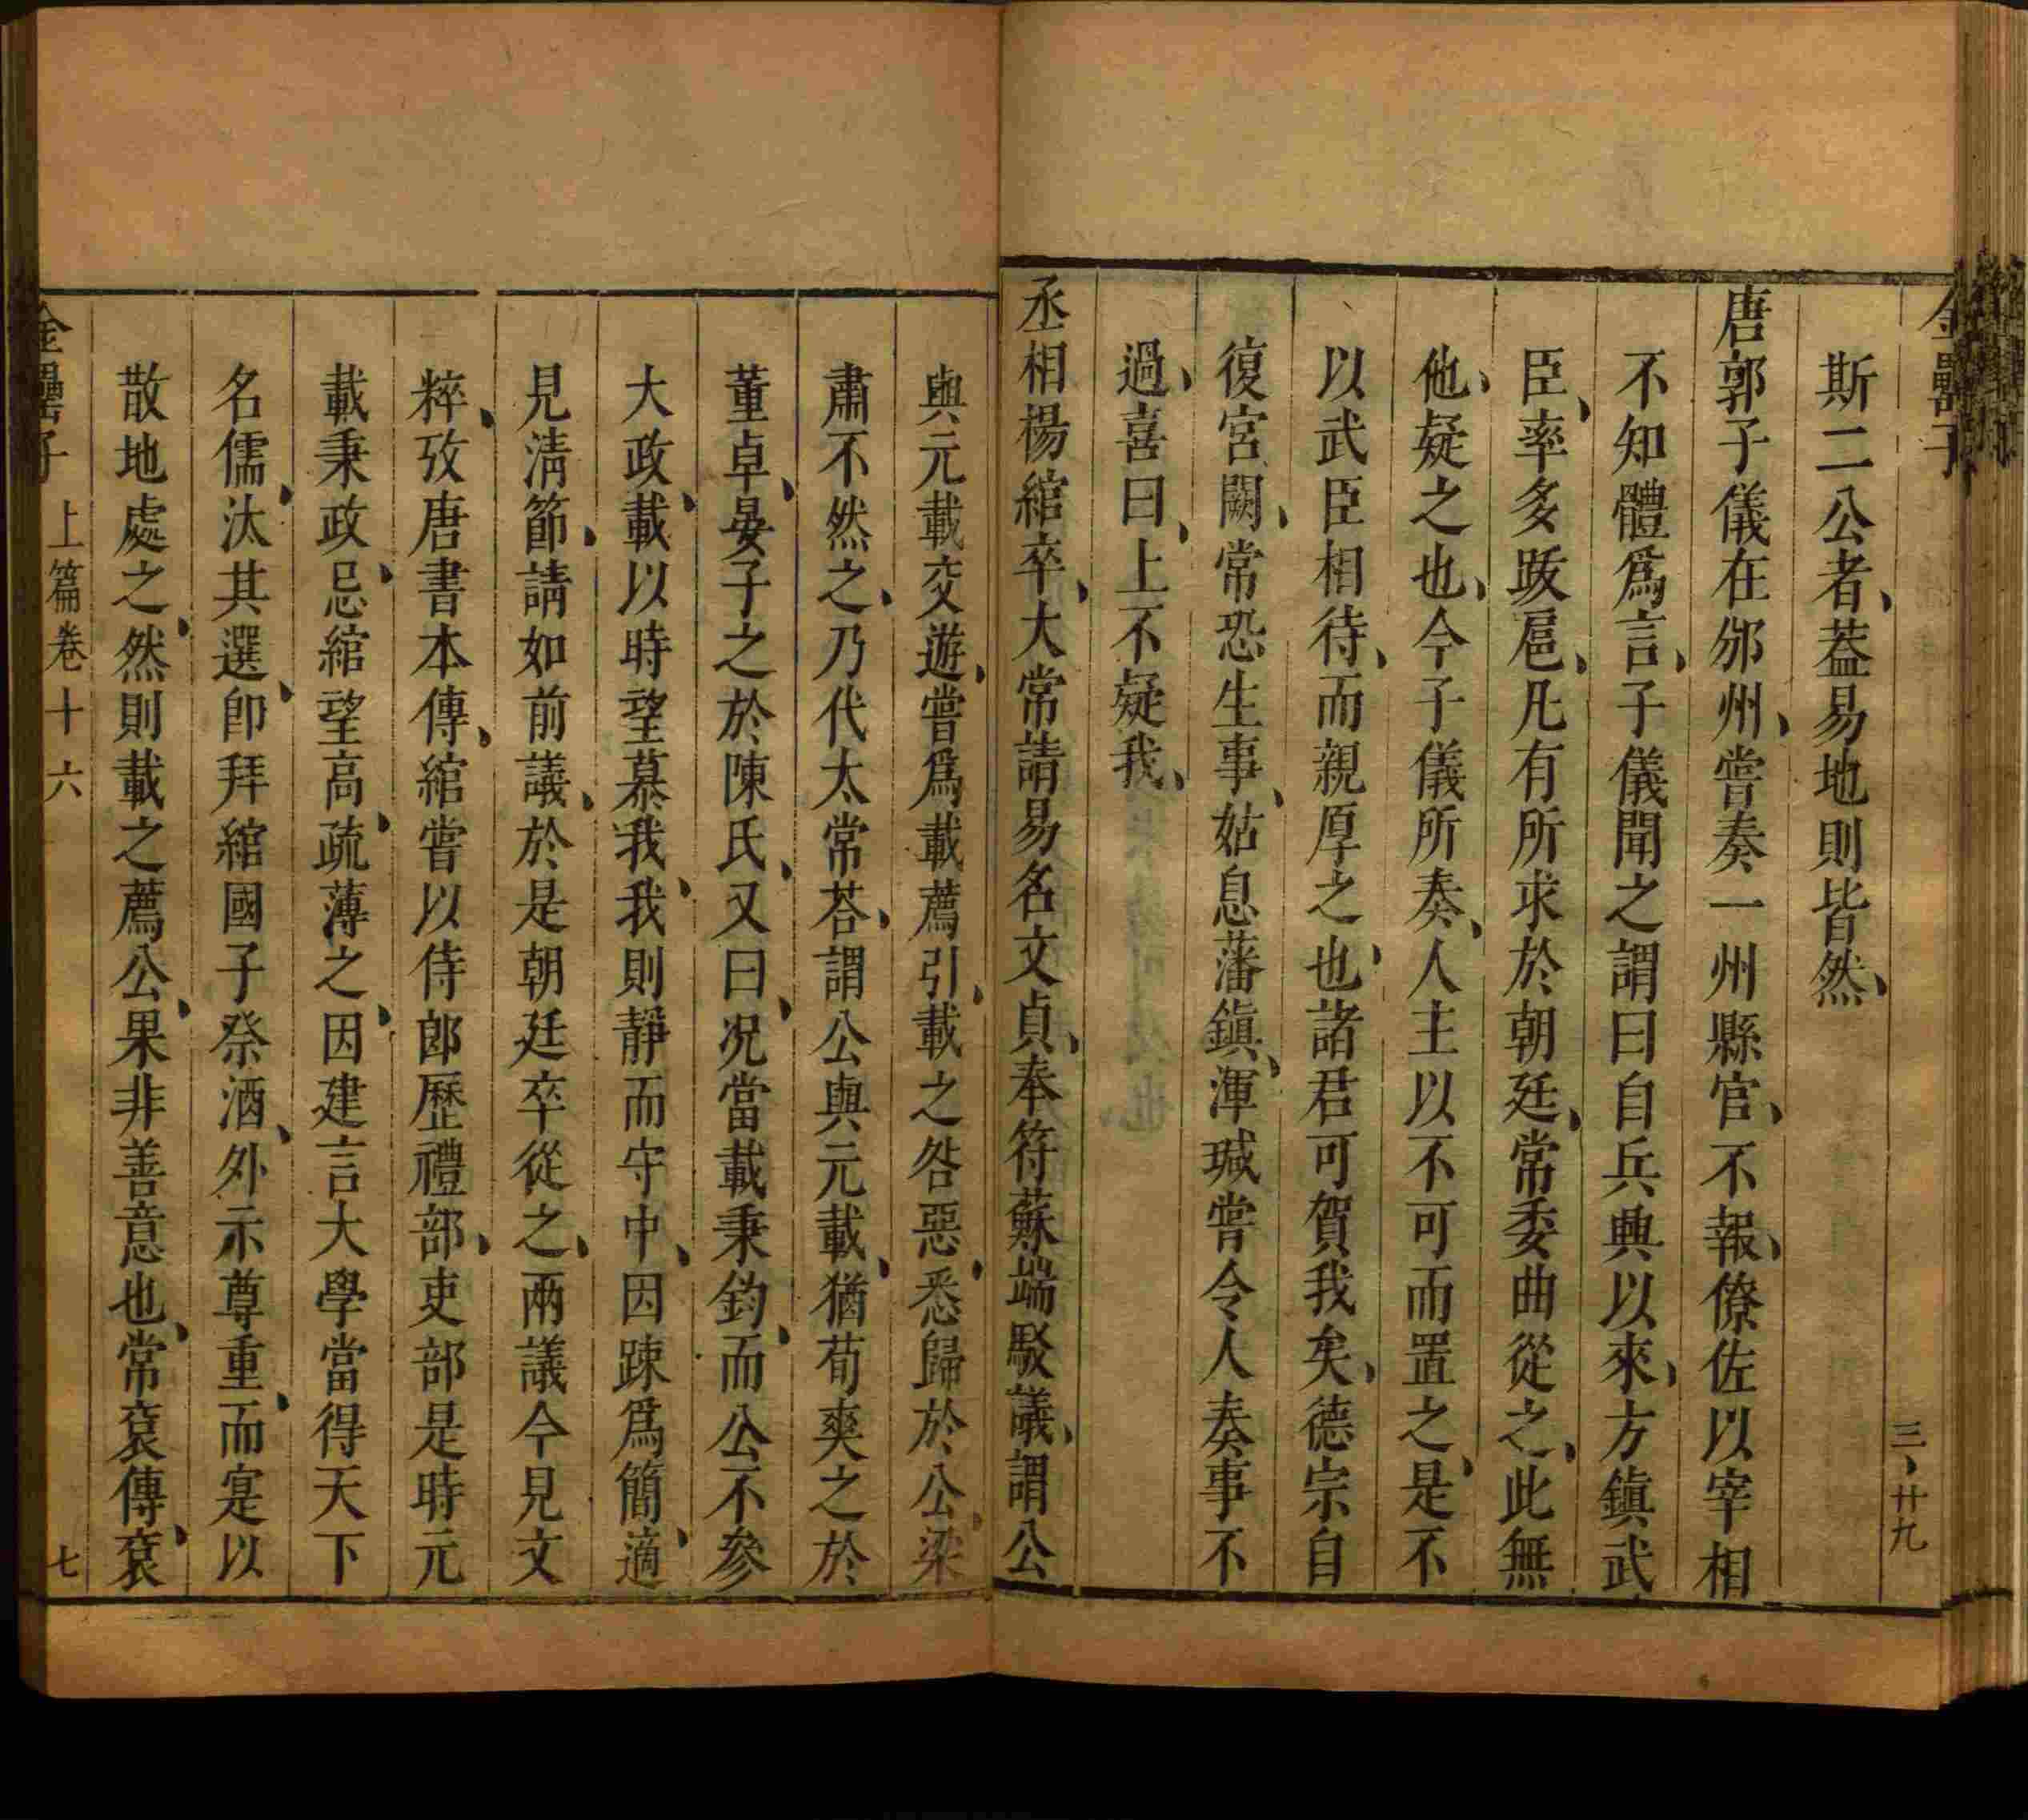 金罍子
三、廿九
斯二公者、葢易地則皆然、
唐郭子儀在邠州、嘗奏一州縣官、不報、僚佐以宰相
不知體爲言、子儀聞之謂曰自兵興以來、方鎮武
臣、率多跋扈、凡有所求於朝廷、常委曲從之、此無
他、疑之也、今子儀所奏、人主以不可而置之、是不
以武臣相待、而親厚之也、諸君可賀我矣、德宗自
復宮闕、常恐生事、姑息藩鎮、渾瑊嘗令人奏事不
過、喜曰、上不疑我、
丞相楊綰卒、大常請易名文貞、奉符蘇端駁議、謂公
與元載交遊、嘗爲載薦引、載之咎惡、悉歸於公、梁
肅不然之、乃代太常荅、謂公與元載、猶荀爽之於
董卓、晏子之於陳氏、又曰、况當載秉鈞、而公不參
大政、載以時望慕我、我則靜而守中、因踈爲簡、適
見淸節、請如前議、於是朝廷卒從之、兩議今見文
粹、攷唐書本傳、綰嘗以侍郎歷禮部、吏部是時元
載秉政、忌綰望高、疏薄之、因建言大學當得天下
名儒、汰其選、卽拜綰國子祭酒、外示尊重、而寔以
散地處之、然則載之薦公、果非善意也、常袞傳、袞
金罍子
上篇卷十六
七